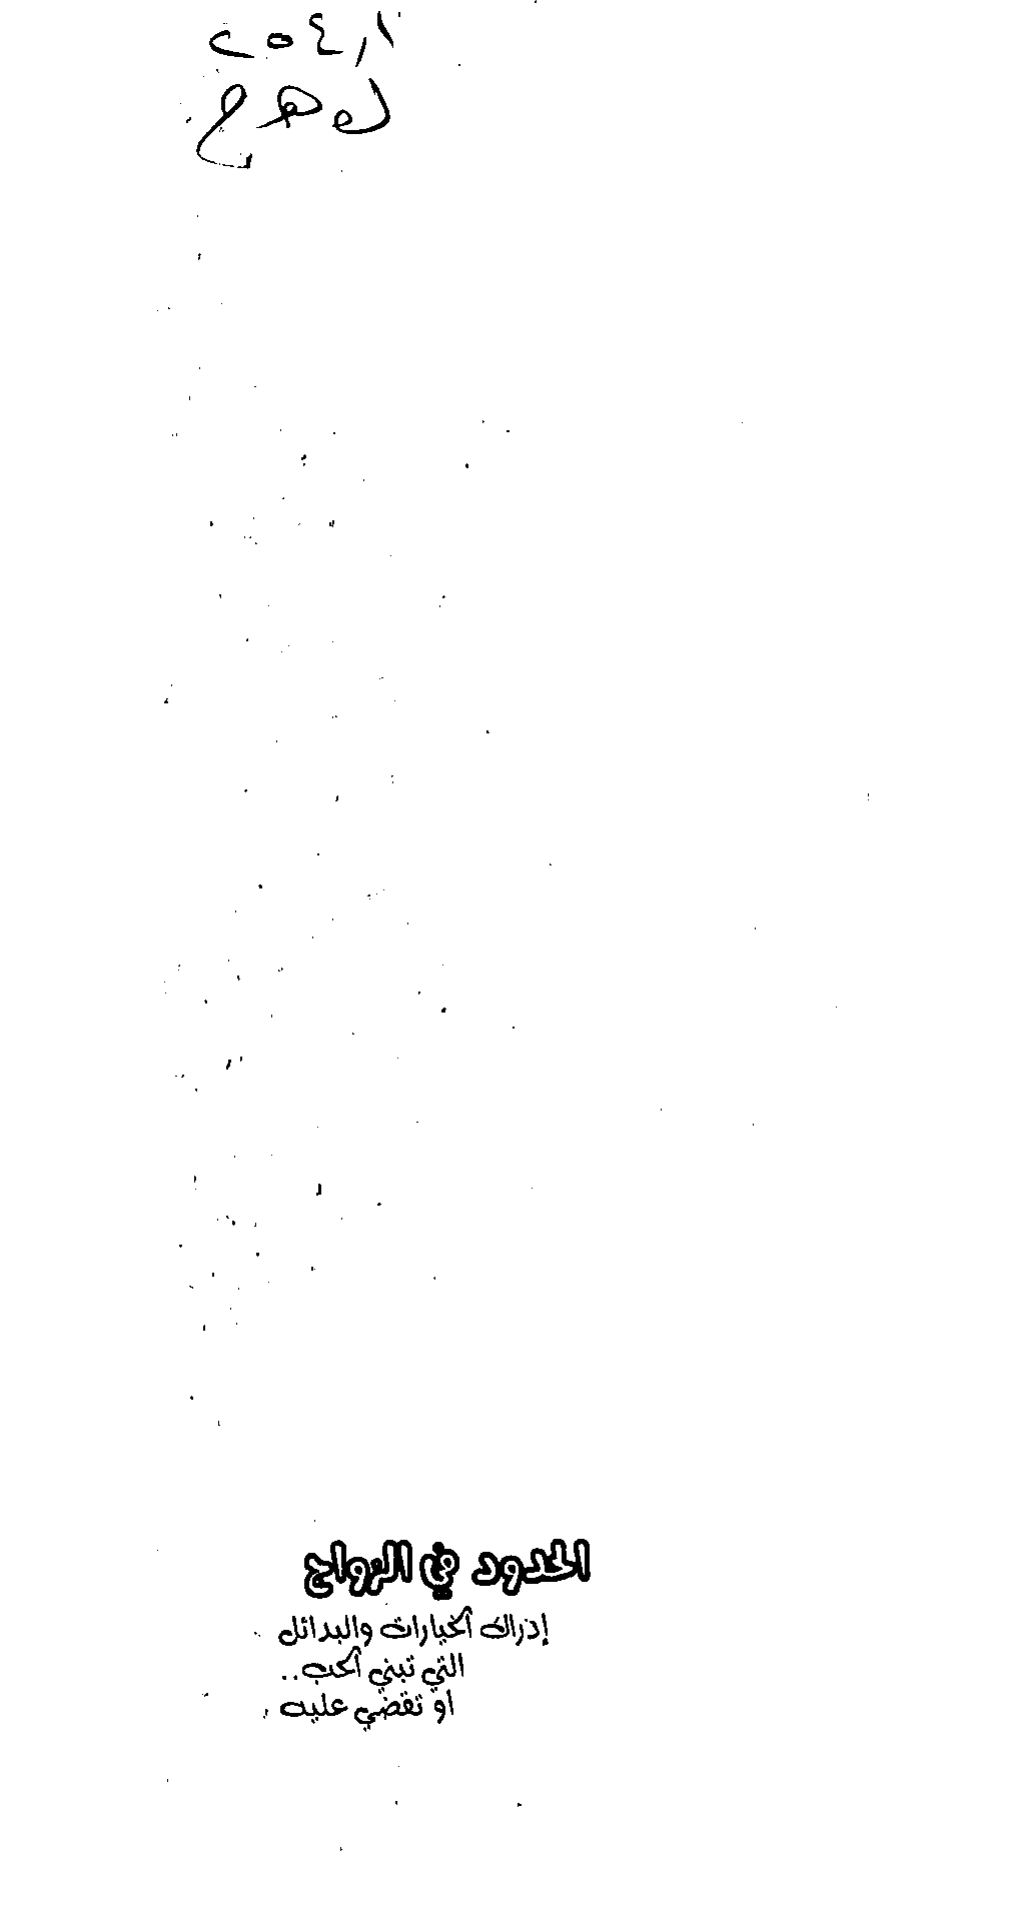 ك ه ح
الحدود في الزواج
إدراك الخيارات والبدائل
التي تبني الحب..
أو تقضي عليه